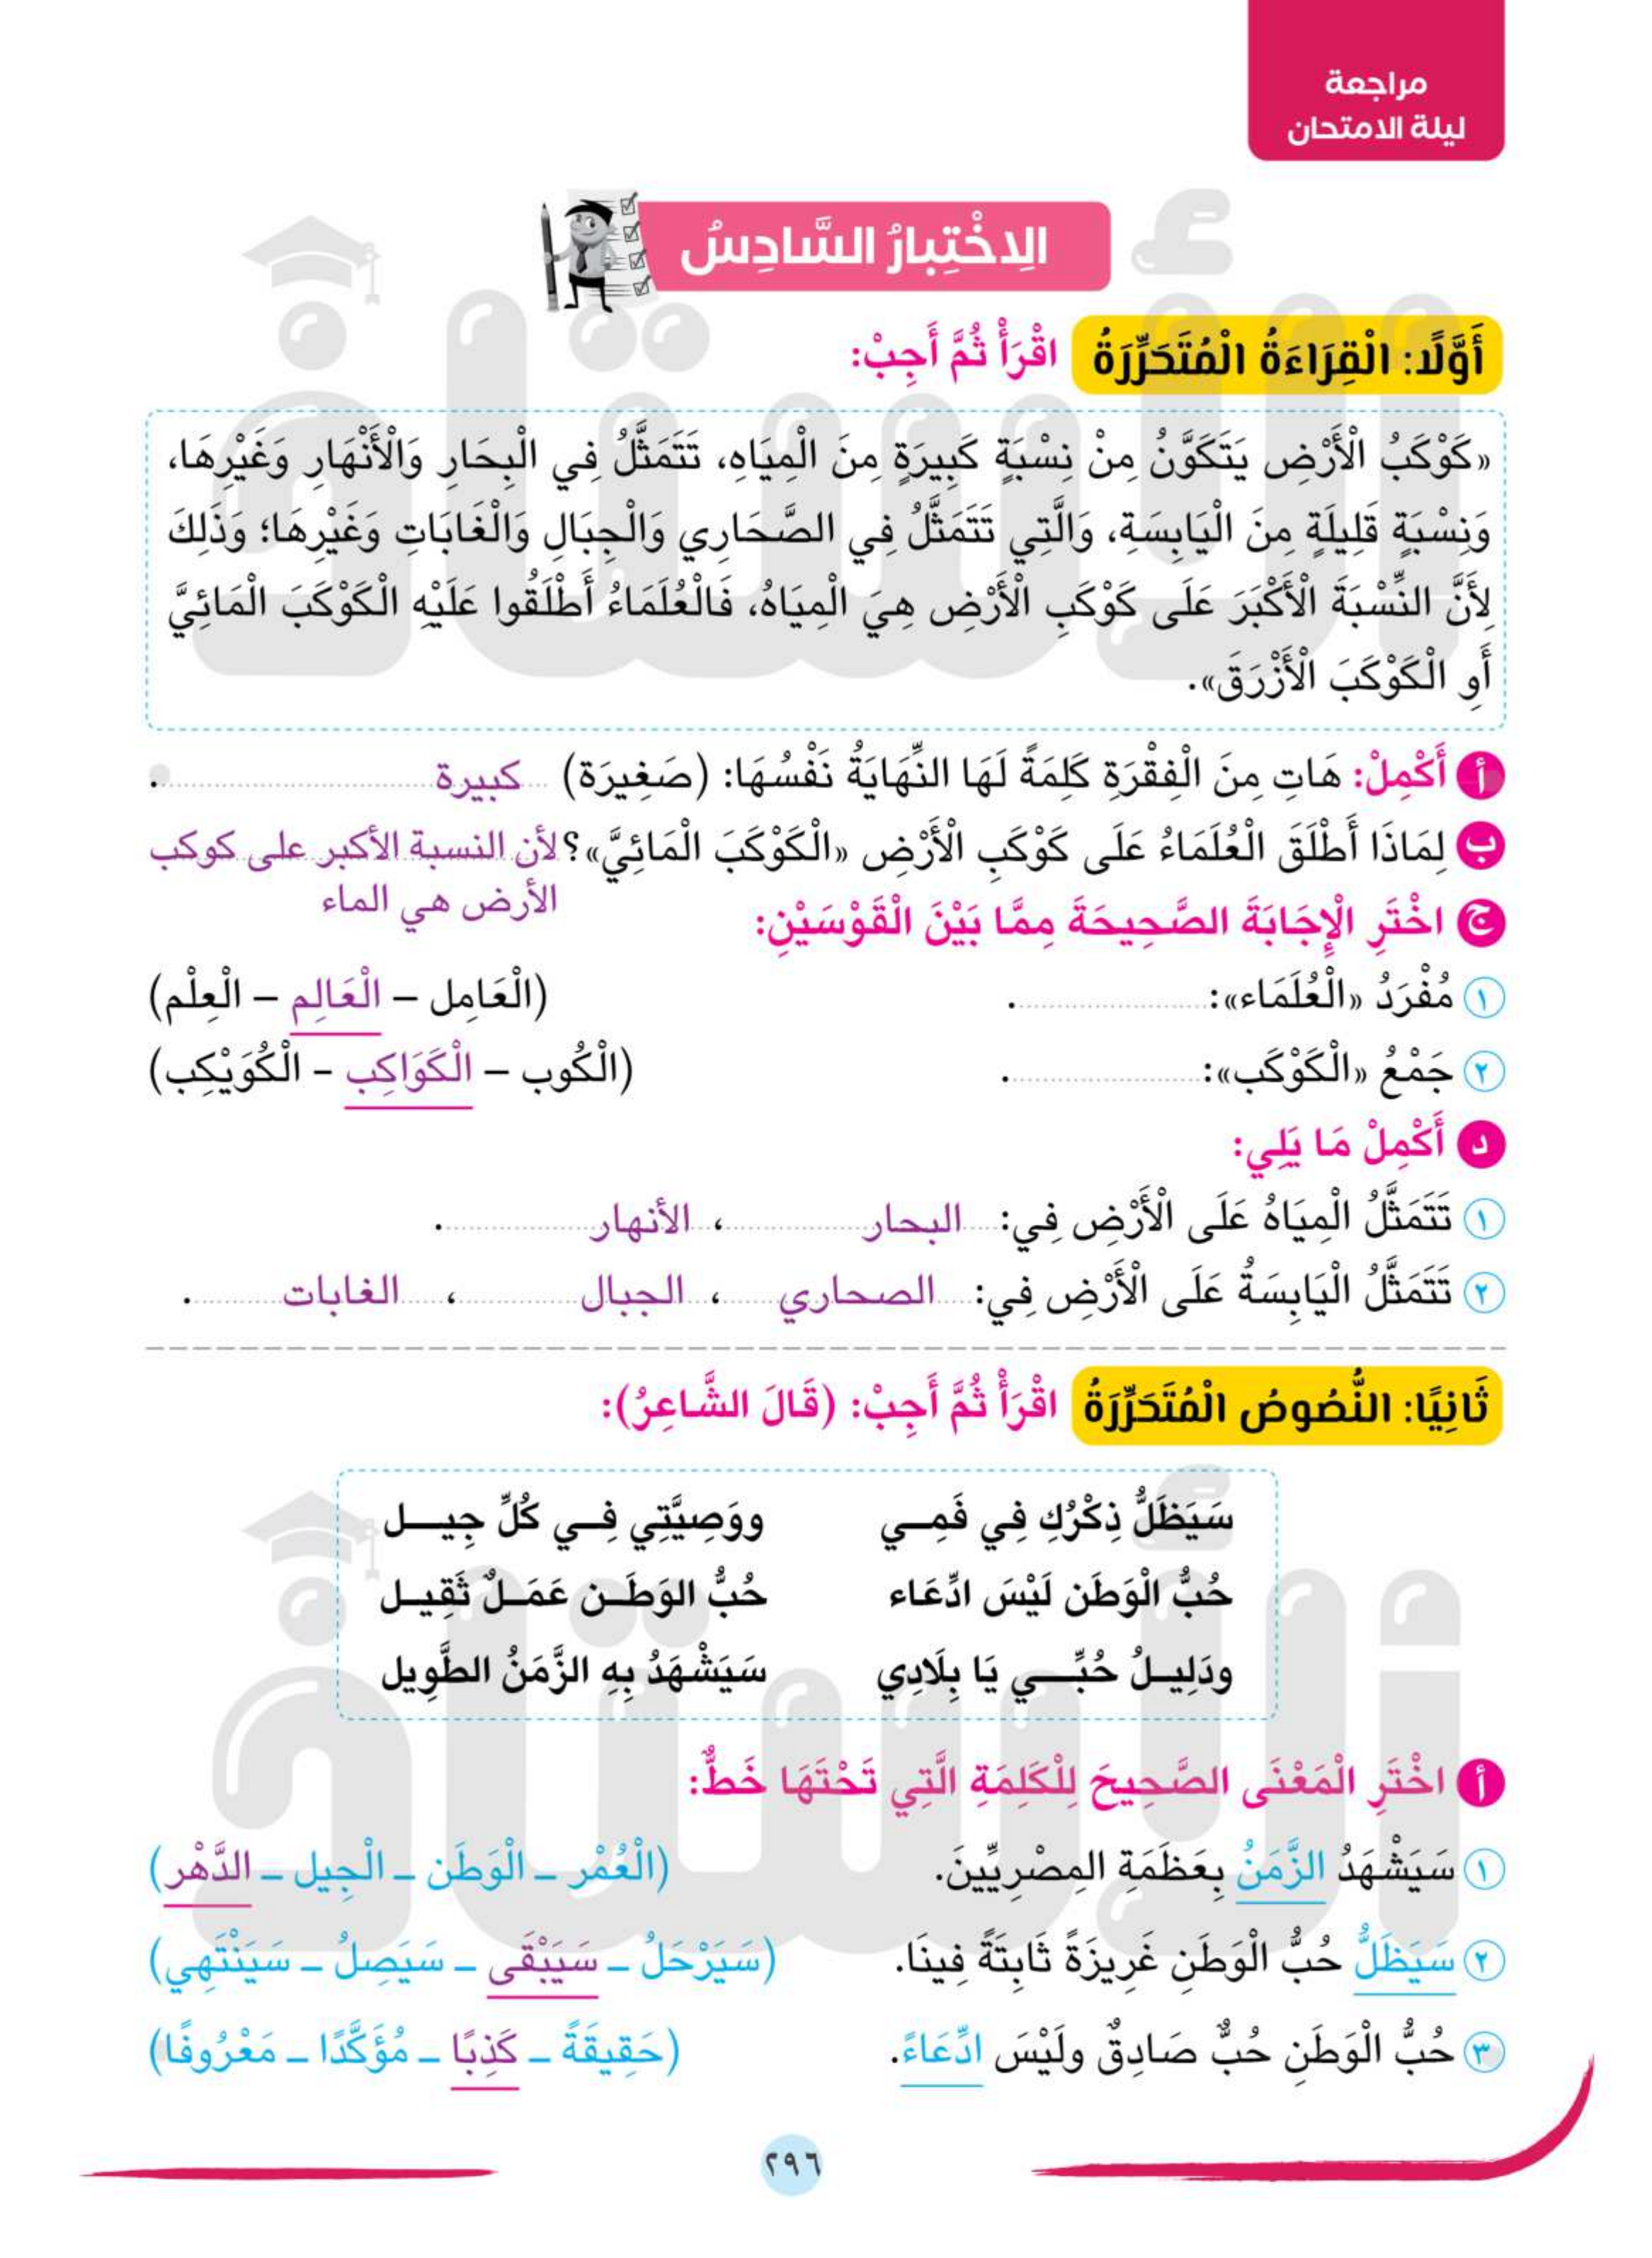 مراجعة
ليلة الامتحان
الِاخْتِبارُ السَّادِسُ
أَوَّلًا: الْقِرَاءَةُ الْمُتَحَرِّرَةُ اقْرَأْ ثُمَّ أَجِبْ:
«كَوْكَبُ الْأَرْضِ يَتَكَوَّنُ مِنْ نِسْبَةٍ كَبِيرَةٍ مِنَ الْمِيَاهِ، تَتَمَثَّلُ فِي الْبِحَارِ وَالْأَنْهَارِ وَغَيْرِهَا،
وَنِسْبَةٍ قَلِيلَةٍ مِنَ الْيَابِسَةِ، وَالَّتِي تَتَمَثَّلُ فِي الصَّحَارِي وَالْجِبَالِ وَالْغَابَاتِ وَغَيْرِهَا؛ وَذَلِكَ
لِأَنَّ النِّسْبَةَ الْأَكْبَرَ عَلَى كَوْكَبِ الْأَرْضِ هِيَ الْمِيَاهُ، فَالْعُلَمَاءُ أَطْلَقُوا عَلَيْهِ الْكَوْكَبَ الْمَائِيَّ
أَوِ الْكَوْكَبَ الْأَزْرَقَ».
أ أَكْمِلْ: هَاتِ مِنَ الْفِقْرَةِ كَلِمَةً لَهَا النِّهَايَةُ نَفْسُهَا: (صَغِيرَة) كبيرة .
ب لِمَاذَا أَطْلَقَ الْعُلَمَاءُ عَلَى كَوْكَبِ الْأَرْضِ «الْكَوْكَبَ الْمَائِيَّ»؟ لأن النسبة الأكبر على كوكب
الأرض هي الماء
ج اخْتَرِ الْإِجَابَةَ الصَّحِيحَةَ مِمَّا بَيْنَ الْقَوْسَيْنِ:
١ مُفْرَدُ «الْعُلَمَاء»: . (الْعَامِل – الْعَالِم – الْعِلْم)
٢ جَمْعُ «الْكَوْكَب»: . (الْكُوب – الْكَوَاكِب – الْكُوَيْكِب)
د أَكْمِلْ مَا يَلِي:
١ تَتَمَثَّلُ الْمِيَاهُ عَلَى الْأَرْضِ فِي: البحار ، الأنهار .
٢ تَتَمَثَّلُ الْيَابِسَةُ عَلَى الْأَرْضِ فِي: الصحاري ، الجبال ، الغابات .
ثَانِيًا: النُّصُوصُ الْمُتَحَرِّرَةُ اقْرَأْ ثُمَّ أَجِبْ: (قَالَ الشَّاعِرُ):
سَيَظَلُّ ذِكْرُكِ فِي فَمِـي ووَصِيَّتِي فِـي كُلِّ جِيـل
حُبُّ الْوَطَن لَيْسَ ادِّعَاء حُبُّ الوَطَـن عَمَـلٌ ثَقِيـل
ودَلِيـلُ حُبِّـي يَا بِلَادِي سَيَشْهَدُ بِهِ الزَّمَنُ الطَّوِيل
أ اخْتَرِ الْمَعْنَى الصَّحِيحَ لِلْكَلِمَةِ الَّتِي تَحْتَهَا خَطٌّ:
١ سَيَشْهَدُ الزَّمَنُ بِعَظَمَةِ المِصْرِيِّينَ. (الْعُمْر – الْوَطَن – الْجِيل – الدَّهْر)
٢ سَيَظَلُّ حُبُّ الْوَطَنِ غَرِيزَةً ثَابِتَةً فِينَا. (سَيَرْحَلُ – سَيَبْقَى – سَيَصِلُ – سَيَنْتَهِي)
٣ حُبُّ الْوَطَنِ حُبٌّ صَادِقٌ ولَيْسَ ادِّعَاءً. (حَقِيقَةً – كَذِبًا – مُؤَكَّدًا – مَعْرُوفًا)
٢٩٦
الأستاذ
الأستاذ